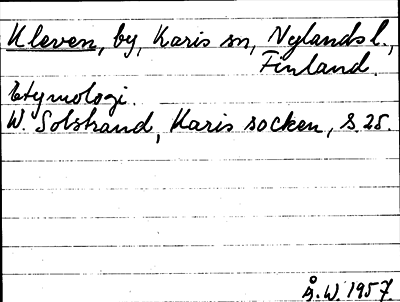 Kleven, by, Karis sn, Nylands l.,
Finland.
Etymologi.
W. Solstrand, Karis socken, s. 25.
Å.W. 1957.